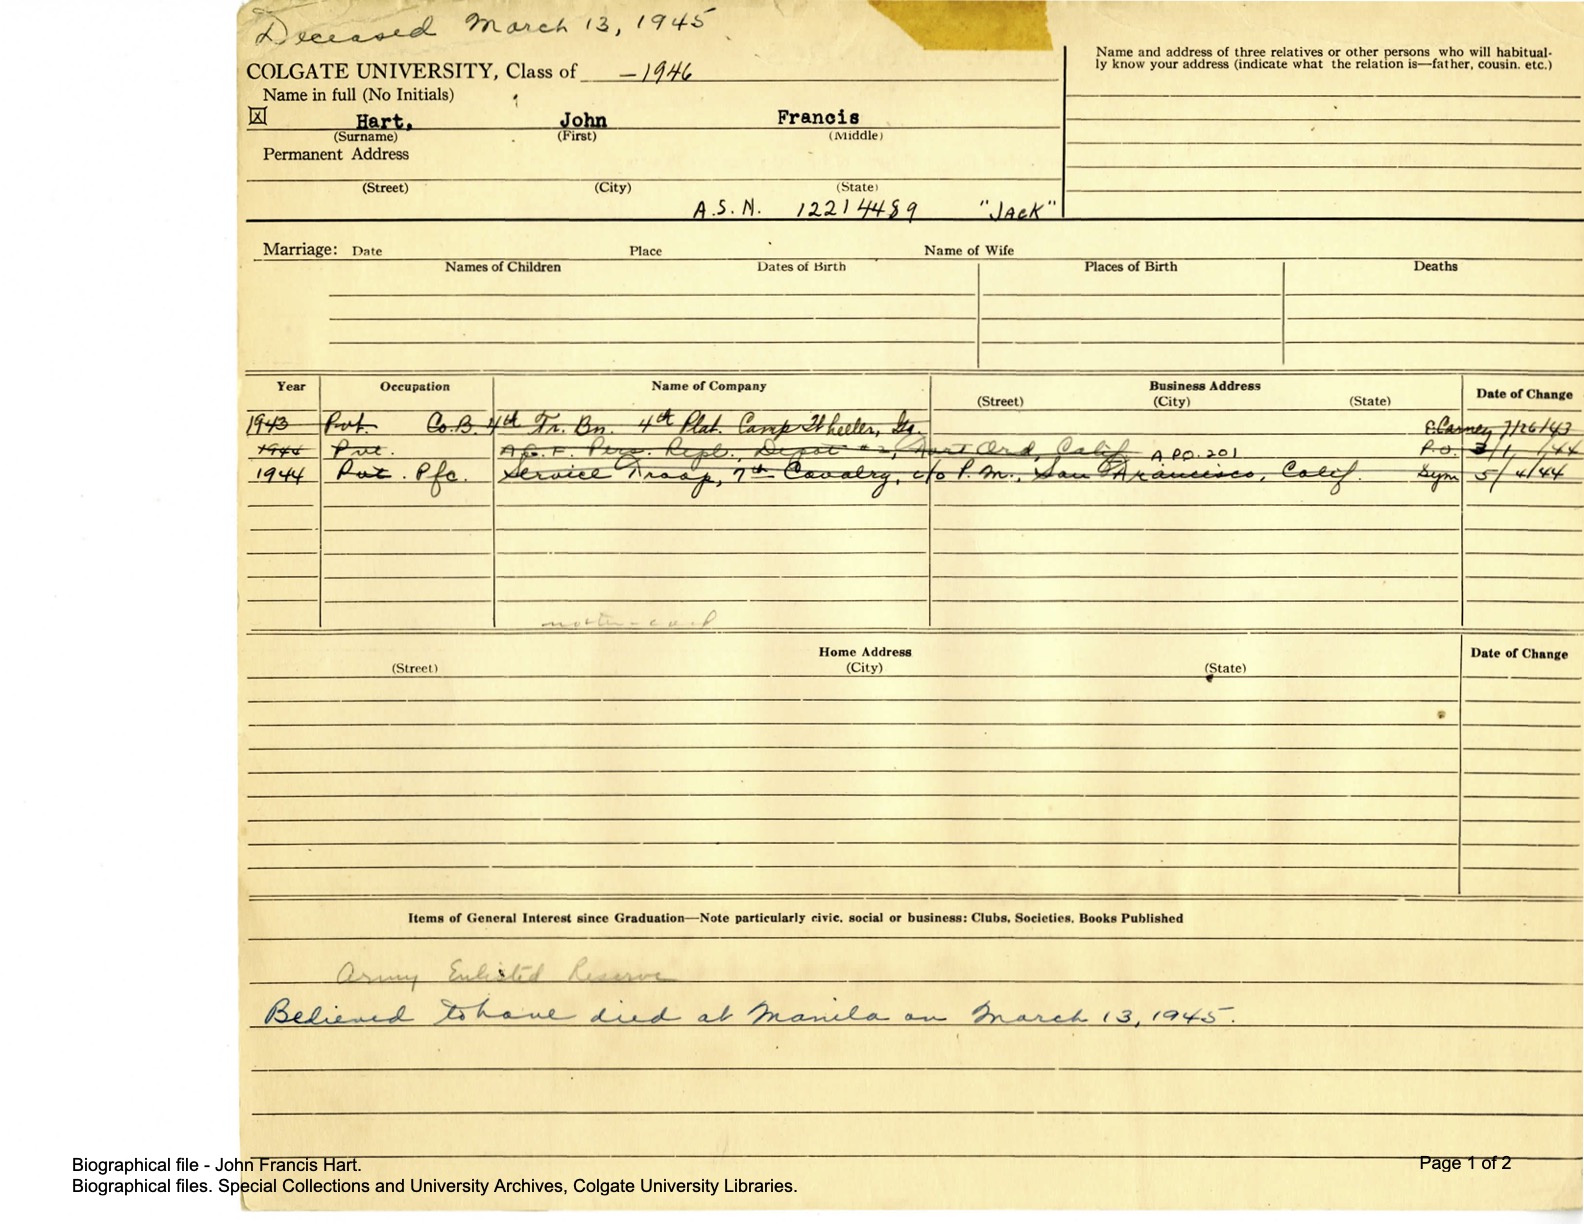 Deceased March 13, 1945.
COLGATE UNIVERSITY, Class of -1946
Name in full (No Initials)
Hart, John Francis
(Surname) (First) (Middle)
Permanent Address
(Street) (City) (State)
A.S.N. 12214489 "JAcK"
Name and address of three relatives or other persons who will habitual-
ly know your address (indicate what the relation is—father, cousin. etc.)
Marriage: Date Place Name of Wife
Names of Children Dates of Birth Places of Birth Deaths
Year Occupation Name of Company Business Address Date of Change
(Street) (City) (State)
1943 Pvt Co.B. 4th Tr. Bn. 4th Plat. Camp Wheeler, Ga. 7/26/43
1944 Pvt. A.G.F. Pers. Repl. Depot #2, Fort Ord, Calif. P.O. 3/1/44
A.P.O. 201
1944 Pvt. Pfc. Service Troop, 7th Cavalry, c/o P.M., San Francisco, Calif. 5/4/44
Home Address Date of Change
(Street) (City) (State)
Items of General Interest since Graduation—Note particularly civic, social or business: Clubs, Societies, Books Published
Army Enlisted Reserve
Believed to have died at Manila on March 13, 1945.
Biographical file - John Francis Hart. Page 1 of 2
Biographical files. Special Collections and University Archives, Colgate University Libraries.